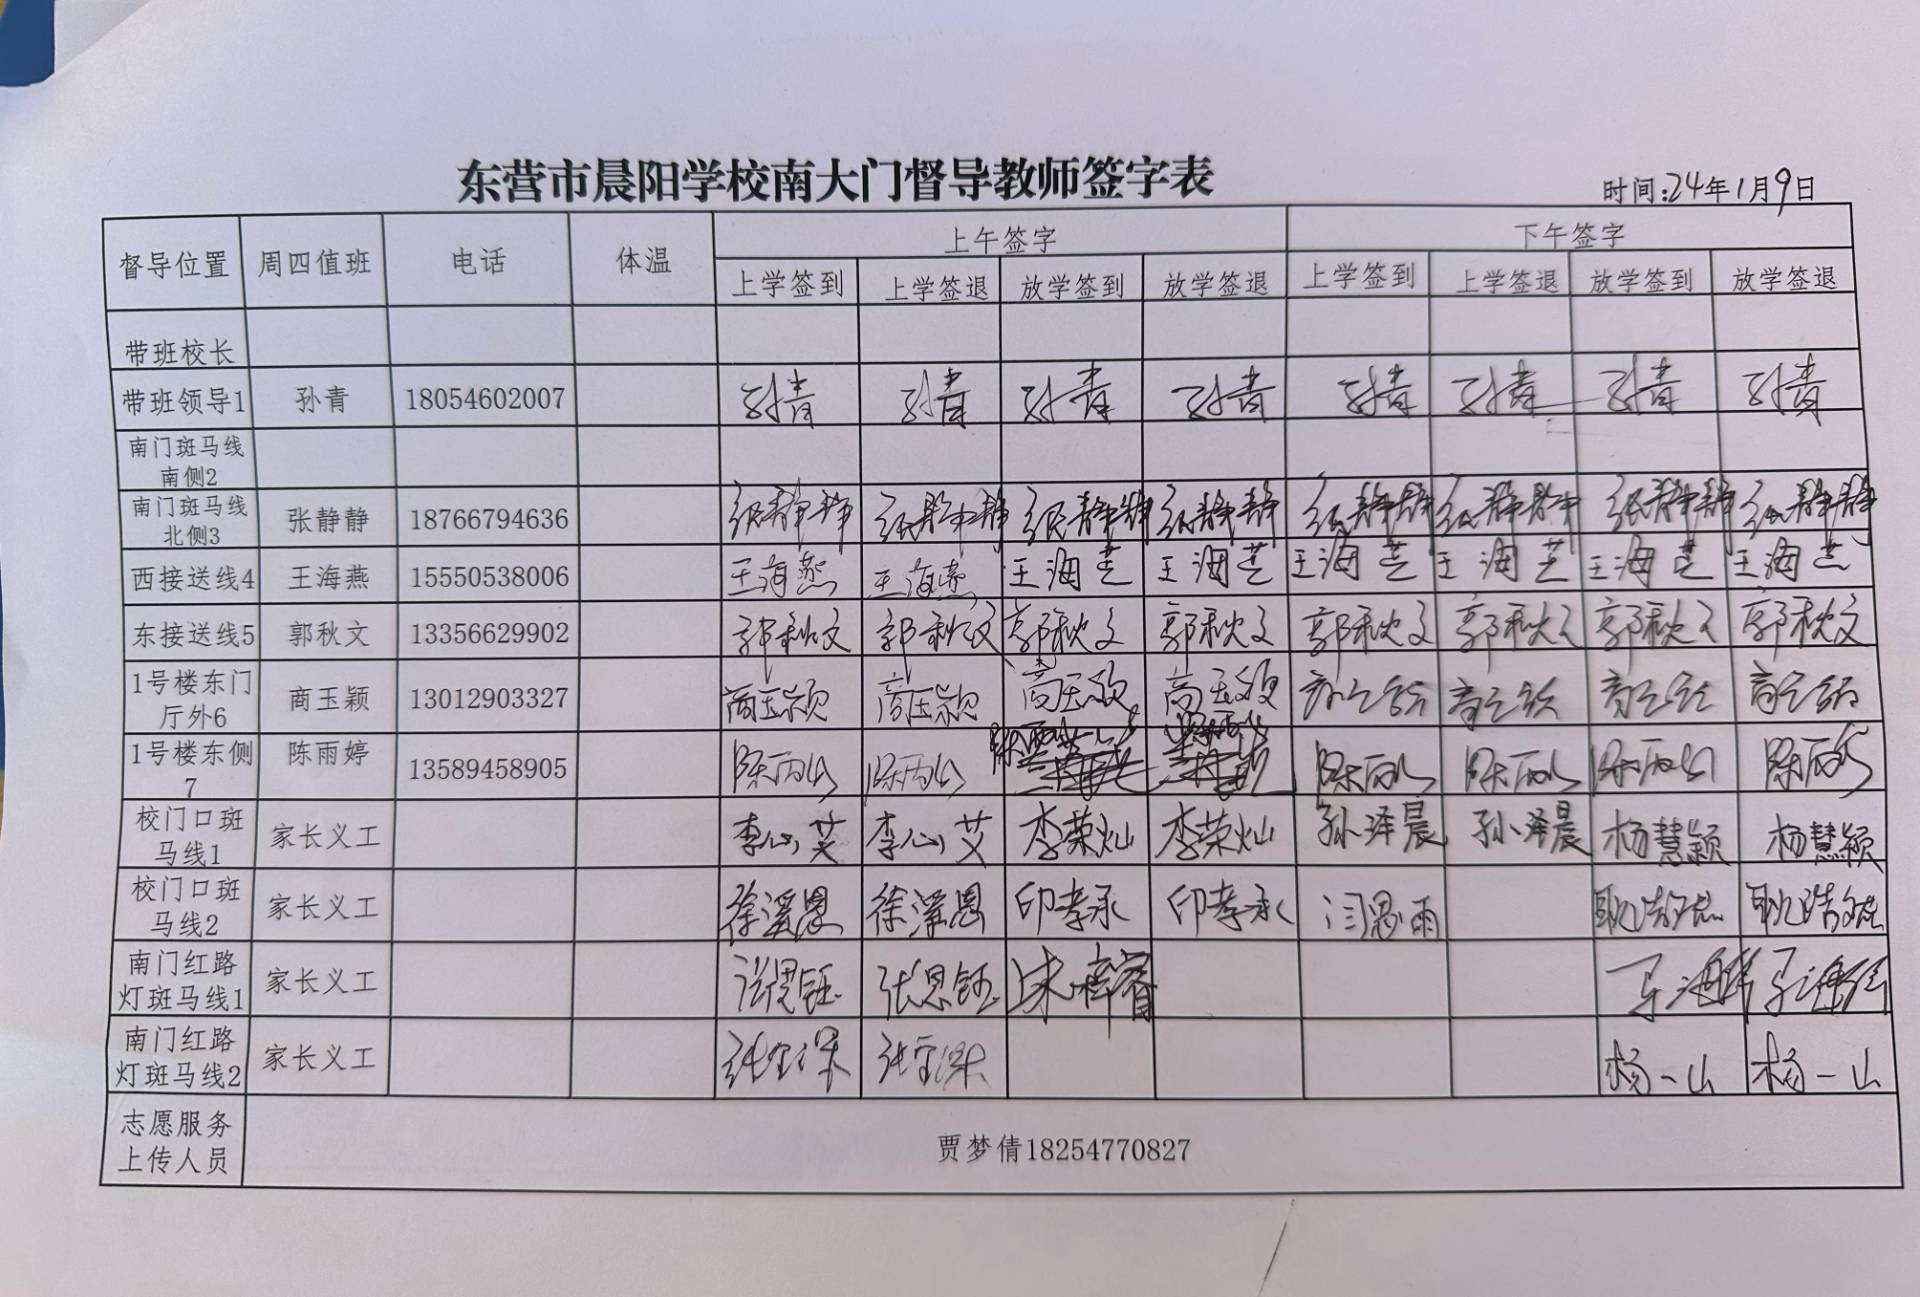 东营市晨阳学校南大门督导教师签字表
时间:24年1月9日
督导位置 周四值班 电话 体温 上午签字 下午签字
上学签到 上学签退 放学签到 放学签退 上学签到 上学签退 放学签到 放学签退
带班校长
带班领导1 孙青 18054602007 孙青 孙青 孙青 孙青 孙青 孙青 孙青 孙青
南门斑马线
南侧2
南门斑马线
北侧3 张静静 18766794636 张静静 张静静 张静静 张静静 张静静 张静静 张静静 张静静
西接送线4 王海燕 15550538006 王海燕 王海燕 王海芝 王海芝 王海芝 王海芝 王海芝 王海芝
东接送线5 郭秋文 13356629902 郭秋文 郭秋文 郭秋文 郭秋文 郭秋文 郭秋文 郭秋文 郭秋文
1号楼东门
厅外6 商玉颖 13012903327 商玉颖 商玉颖 商玉颖 商玉颖
1号楼东侧
7 陈雨婷 13589458905 陈雨 陈雨 陈雨 陈雨 陈雨 陈雨
校门口斑
马线1 家长义工 李心艾 李心艾 李荣灿 李荣灿 孙泽晨 孙泽晨 杨慧颖 杨慧颖
校门口斑
马线2 家长义工 徐溪恩 徐溪恩 印孝承 印孝承 闫思雨
南门红路
灯斑马线1 家长义工 张恩钰 张恩钰 宋梓睿
南门红路
灯斑马线2 家长义工 杨一山 杨一山
志愿服务
上传人员 贾梦倩18254770827